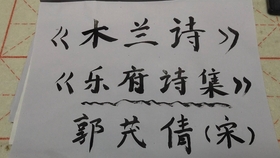 《木兰诗》
《乐府诗集》
郭茂倩(宋)